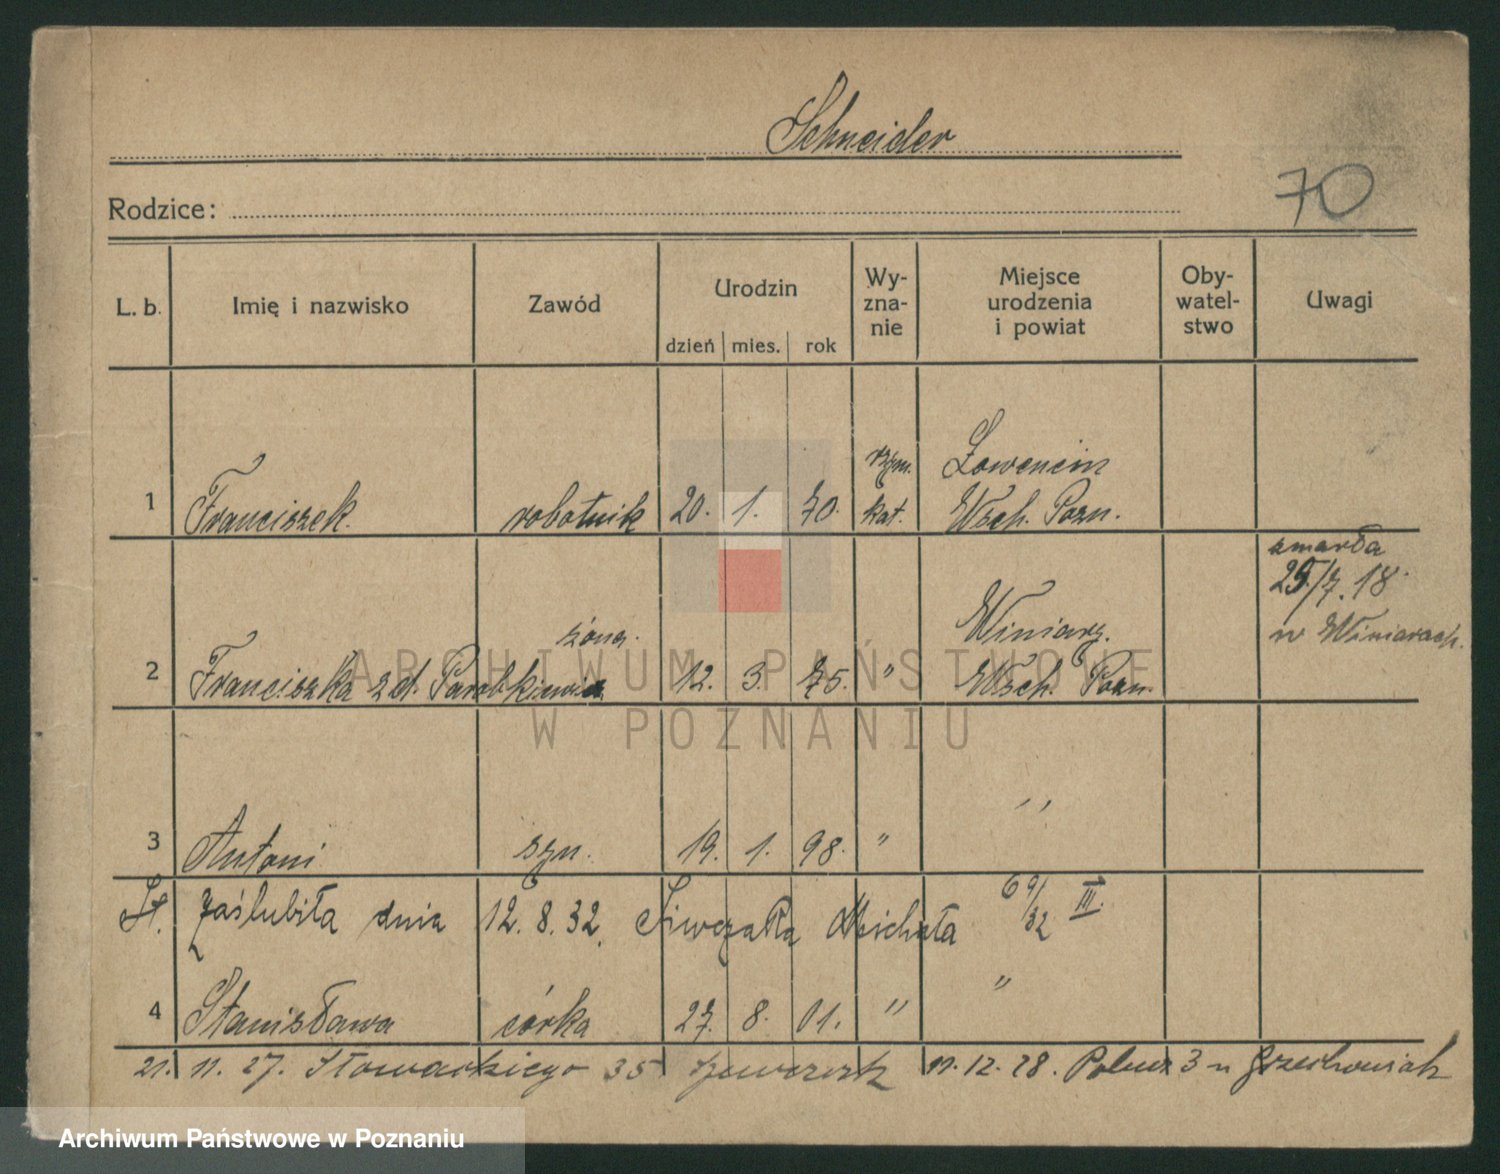 Schneider
70
Rodzice:
L. b. Imię i nazwisko Zawód Urodzin dzień mies. rok Wy-zna-nie Miejsce urodzenia i powiat Oby-watel-stwo Uwagi
1 Franciszek robotnik 20. 1. 70. rzym. kat. Łowencin Wsch. Pozn.
zmarła
25/7.18.
w Winiarach.
2 Franciszka zd. Parobkiewicz żona. 12. 3. 75. " Winiary. Wsch. Pozn.
ARCHIWUM PAŃSTWOWE
W POZNANIU
3 Antoni syn. 19. 1. 98. " "
St. zaślubiła dnia 12.8.32. Siwczaka Michała 69/32 III.
4 Stanisława córka 27. 8. 01. " "
21. 11. 27. Słowackiego 35 11.12.28. 3
Archiwum Państwowe w Poznaniu